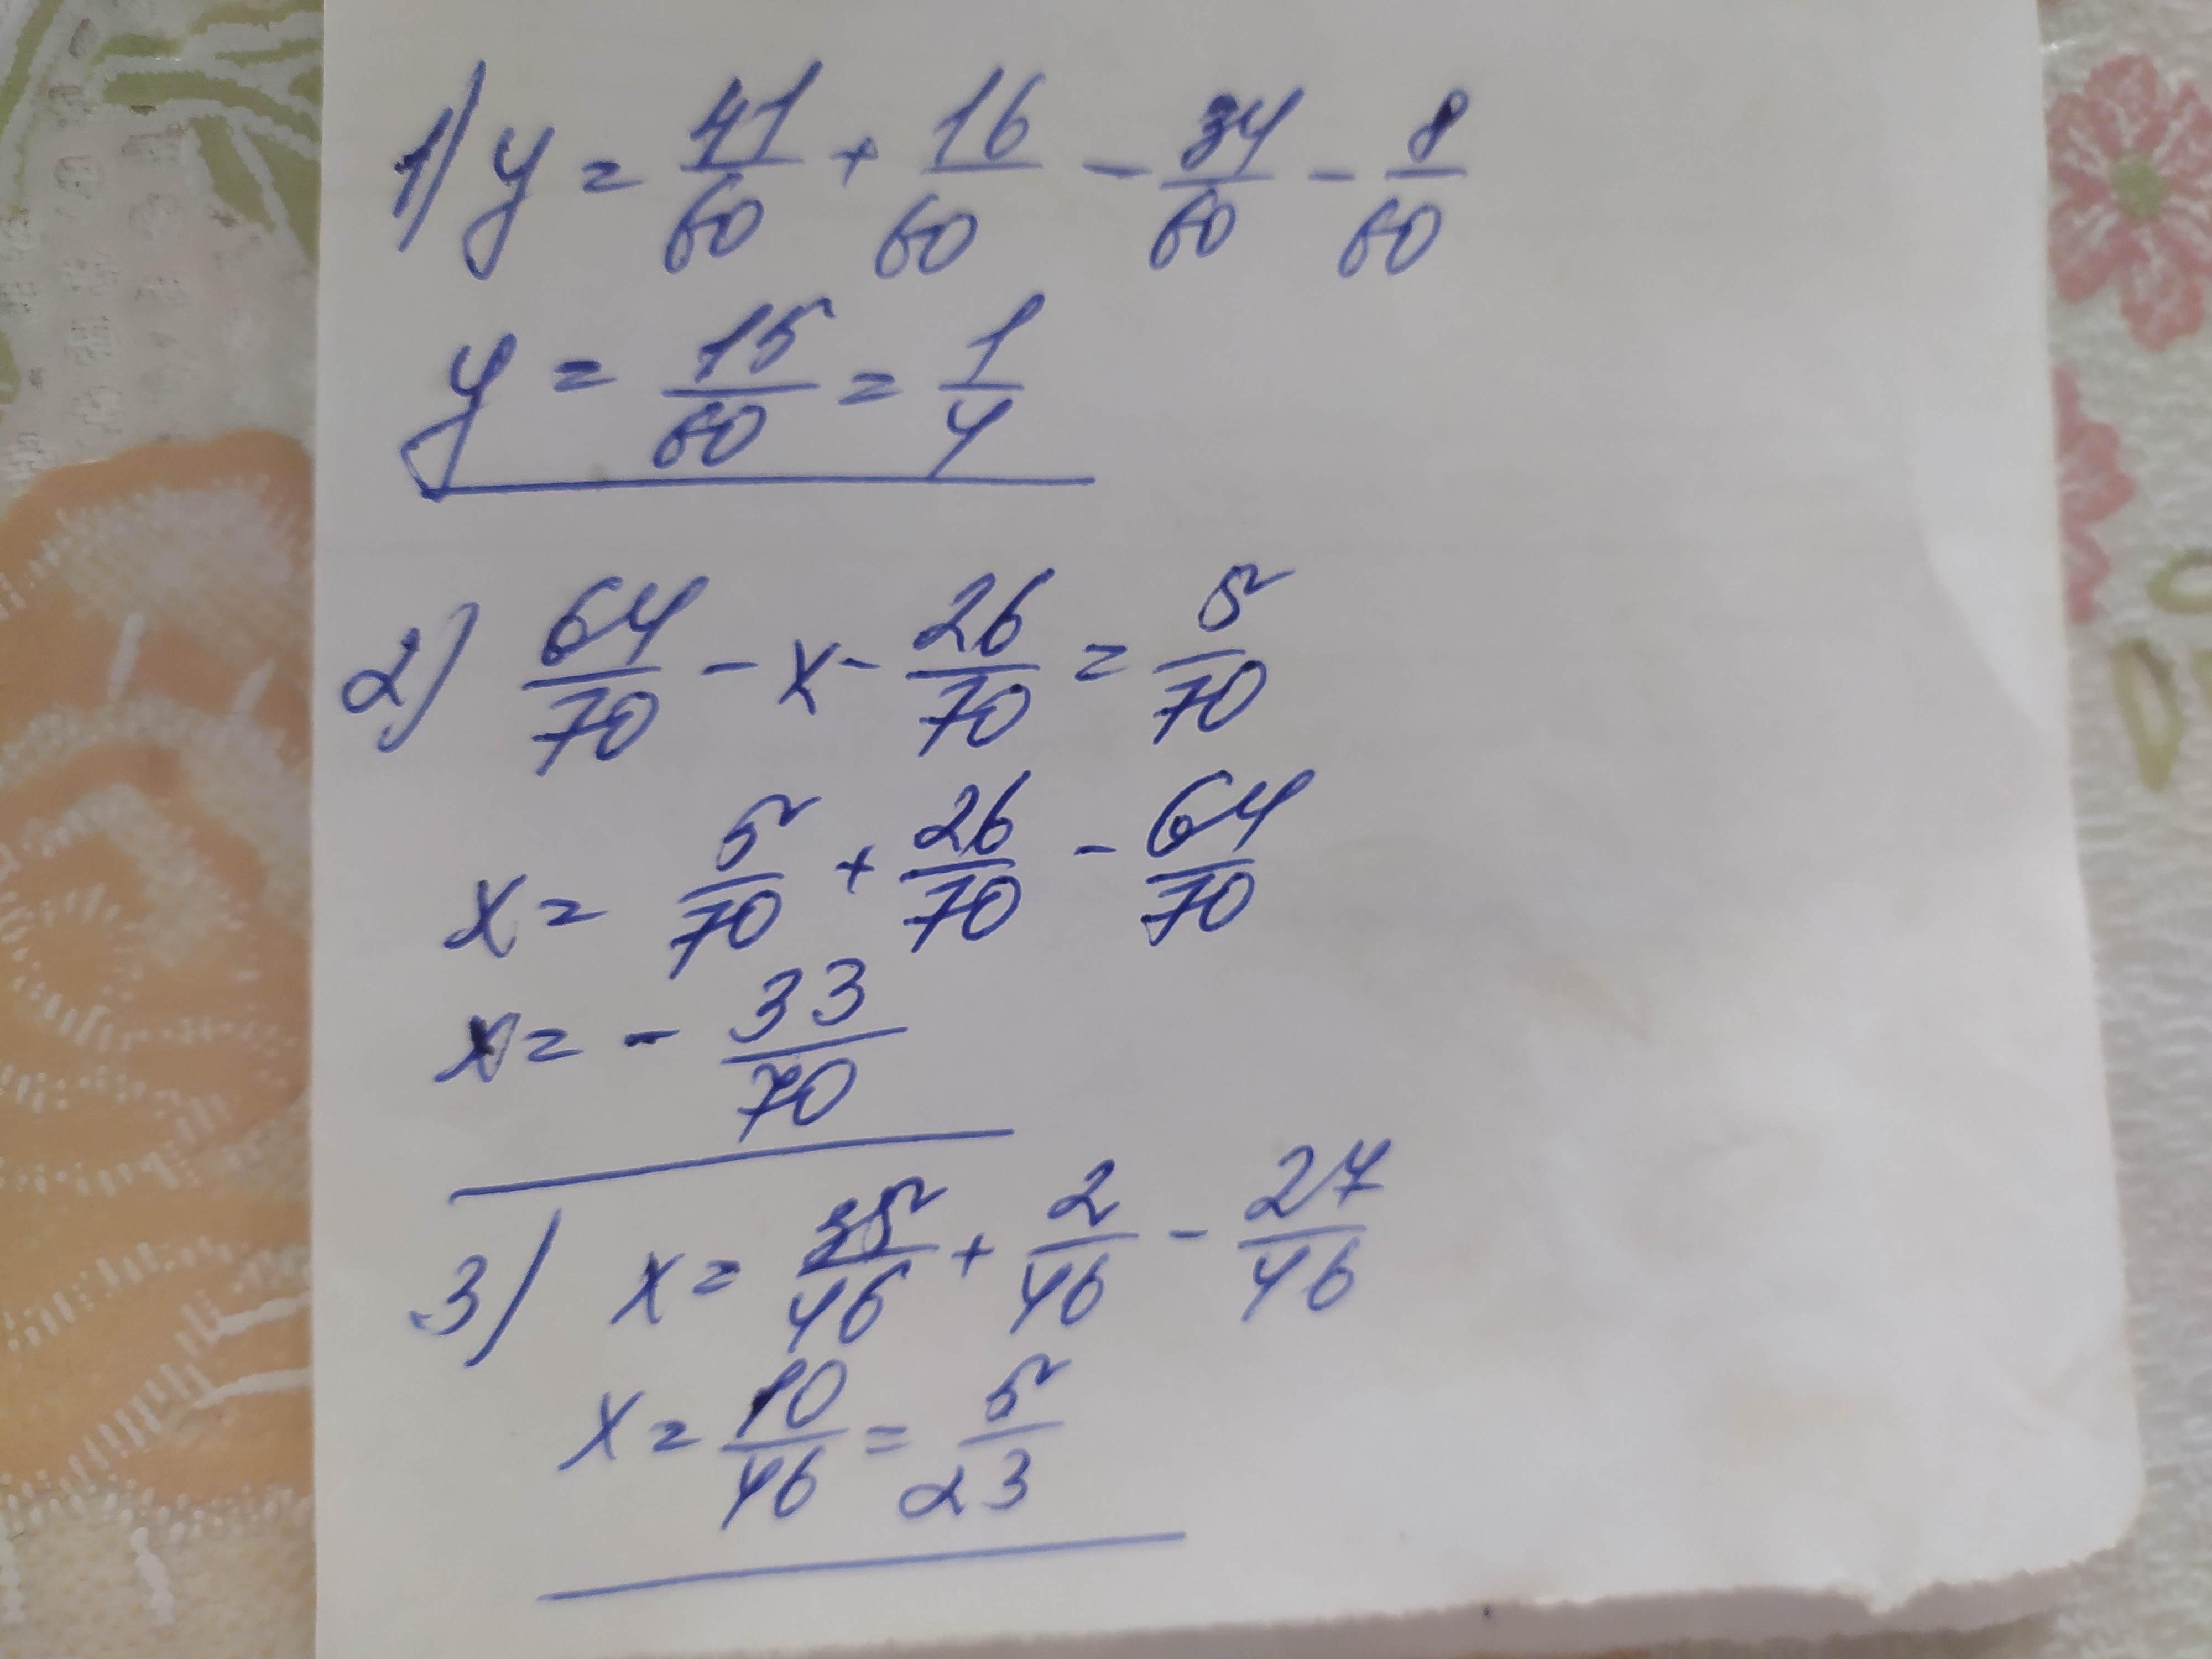 1) y = 41/60 + 16/60 - 34/60 - 8/60
y = 15/60 = 1/4
2) 64/70 - x - 26/70 = 5/70
x = 5/70 + 26/70 - 64/70
x = - 33/70
3) x = 35/46 + 2/46 - 27/46
x = 10/46 = 5/23